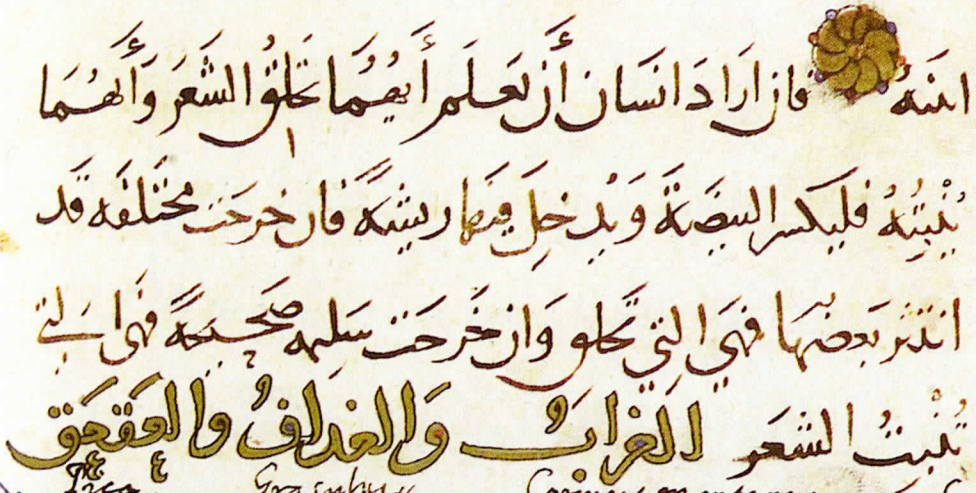 ابنته فان اراد انسان أن يعلم أيهما تحلق الشعر وأيهما
ينبته فليكسر البيضة ويدخل فيها ريشة فان خرجت مختلفة قد
انتثر بعضها فهي التي تحلق وان خرجت سليمة صحيحة فهي التي
تنبت الشعر الغراب والغداف والعقعق